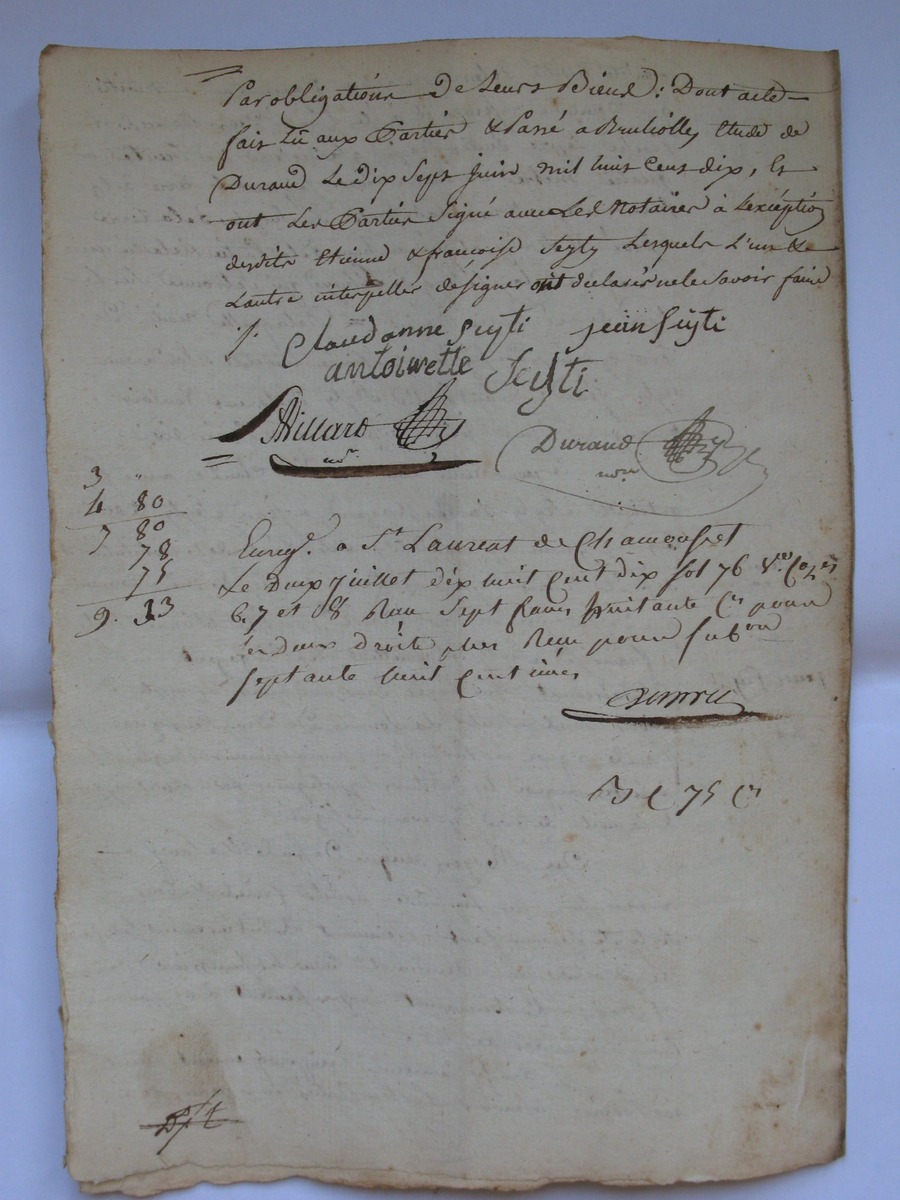 Par obligations de leurs Biens : Dont acte
fait lû aux Parties & Passé a Brulliolles, Etude de
Durand Le dix Sept juin mil huit Cens dix, Et
ont Les Parties Signé avec Les Notaires à L'exception
desdits Etienne & françoise Seyty Lesquels L'un &
Lautre interpellés de signer ont declarés ne le savoir faire
Claudanne Seyti jean Seyti
antoinette Seyti
Durand
nore
3 "
4 80
7 80
78
75
9. 33
Enregé. a St. Laurent de Chamousset
Le Deux juillet dix huit Cent dix fol 76 Vo. Ces
6. 7 et 8 Reçu Sept francs huitante Cs pour
les deux droits plus Reçu pour subon
septante huit Centimes
75 Cs